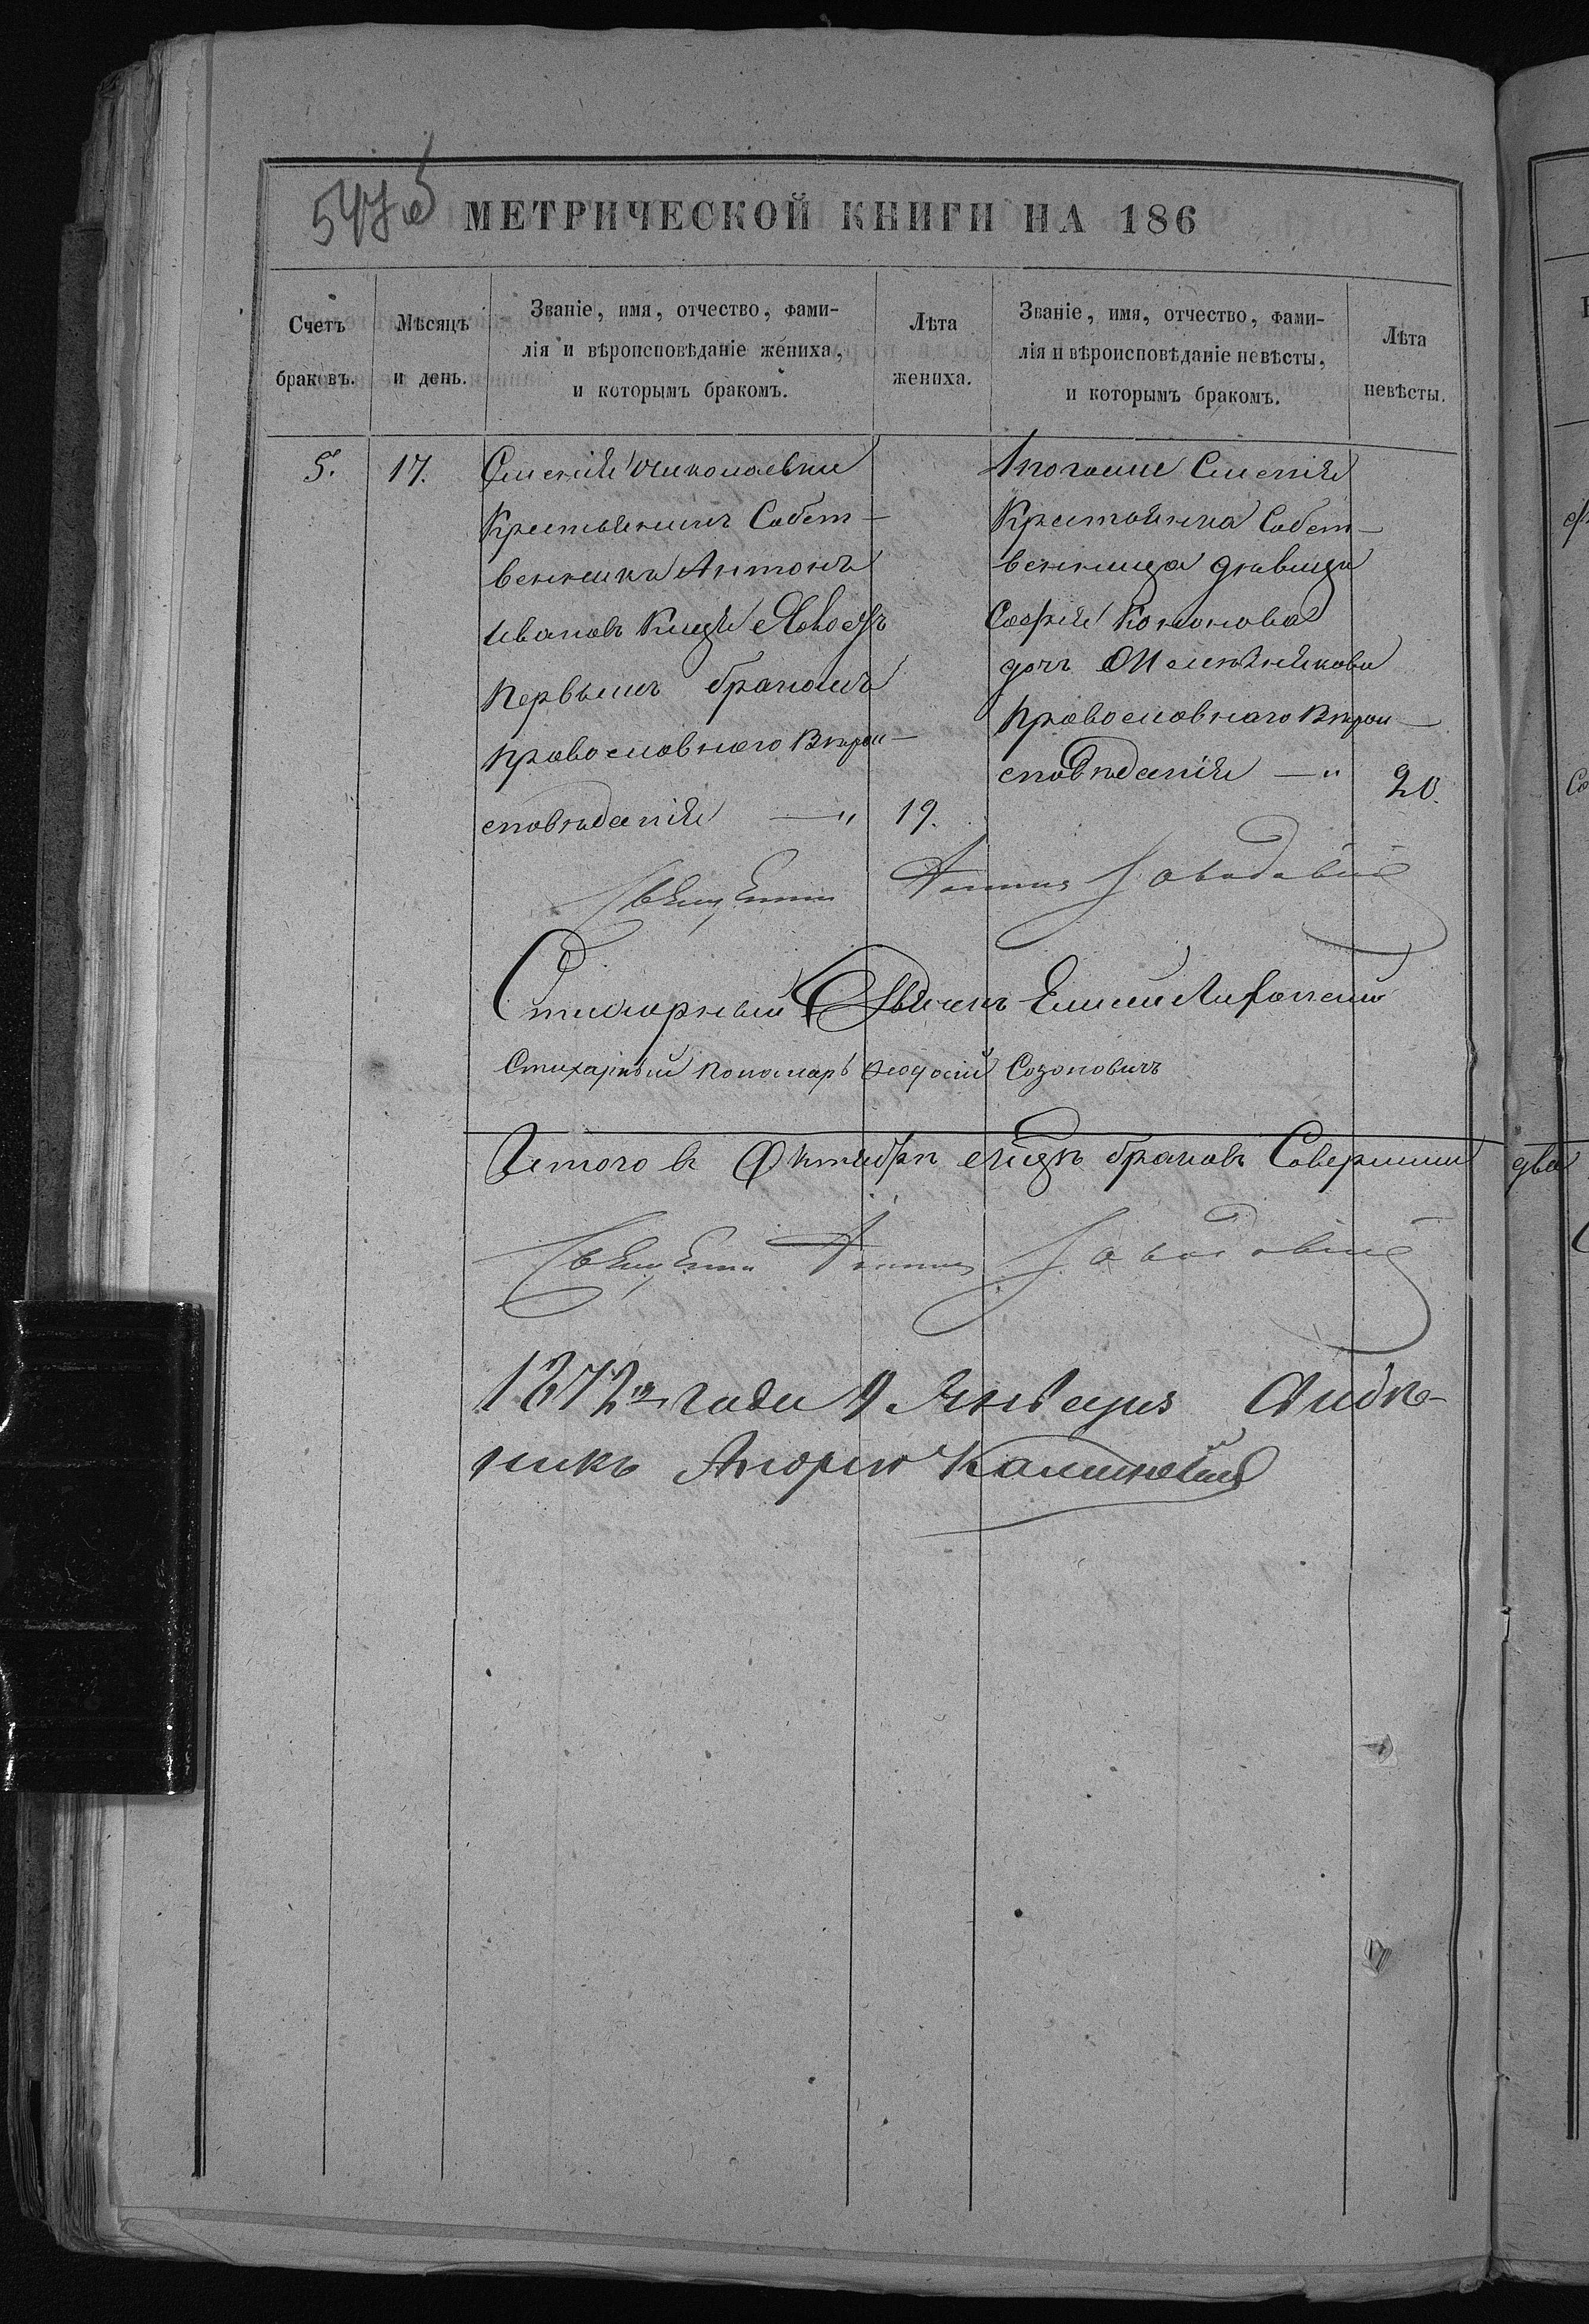 547 об
МЕТРИЧЕСКОЙ КНИГИ НА 186
Счетъ браковъ.
Мѣсяцъ и день.
Званіе, имя, отчество, фами-
лія и вѣроисповѣданіе жениха,
и которымъ бракомъ.
Лѣта жениха.
Званіе, имя, отчество, фами-
лія и вѣроисповѣданіе невѣсты,
и которымъ бракомъ.
Лѣта невѣсты.
5.
17.
Николаевки
Крестьянинъ Собст-
венникъ Антонъ
Ивановъ
первымъ бракомъ
православнаго Вѣрои-
сповѣданія — "
19.
Крестьянка Собст-
венница дѣвица
Софія Кононова
дочь
православнаго Вѣрои-
сповѣданія — "
20.
Священникъ
Стихарный
Стихарный пономарь Феодосій Созоновичъ
Итого въ Октябрѣ м-цѣ браковъ Совершили два
Священникъ
1872 года 9 Января